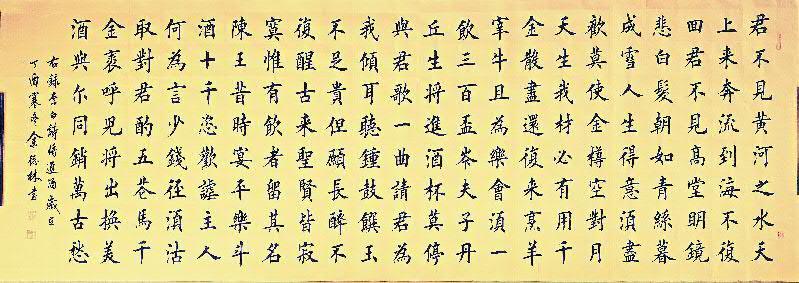 君不見黃河之水天
上来奔流到海不復
回君不見高堂明鏡
悲白髮朝如青絲暮
成雪人生得意須盡
歡莫使金樽空對月
天生我材必有用千
金散盡還復来烹羊
宰牛且為樂會須一
飲三百盃岑夫子丹
丘生將進酒杯莫停
與君歌一曲請君為
我傾耳聽鍾鼓饌玉
不足貴但願長醉不
復醒古来聖賢皆寂
寞惟有飲者留其名
陳王昔時宴平樂斗
酒十千恣歡謔主人
何為言少錢徑須沽
取對君酌五花馬千
金裘呼兒將出換美
酒與尔同銷萬古愁
右錄李白詩將進酒歲在
丁酉寒冬余林書